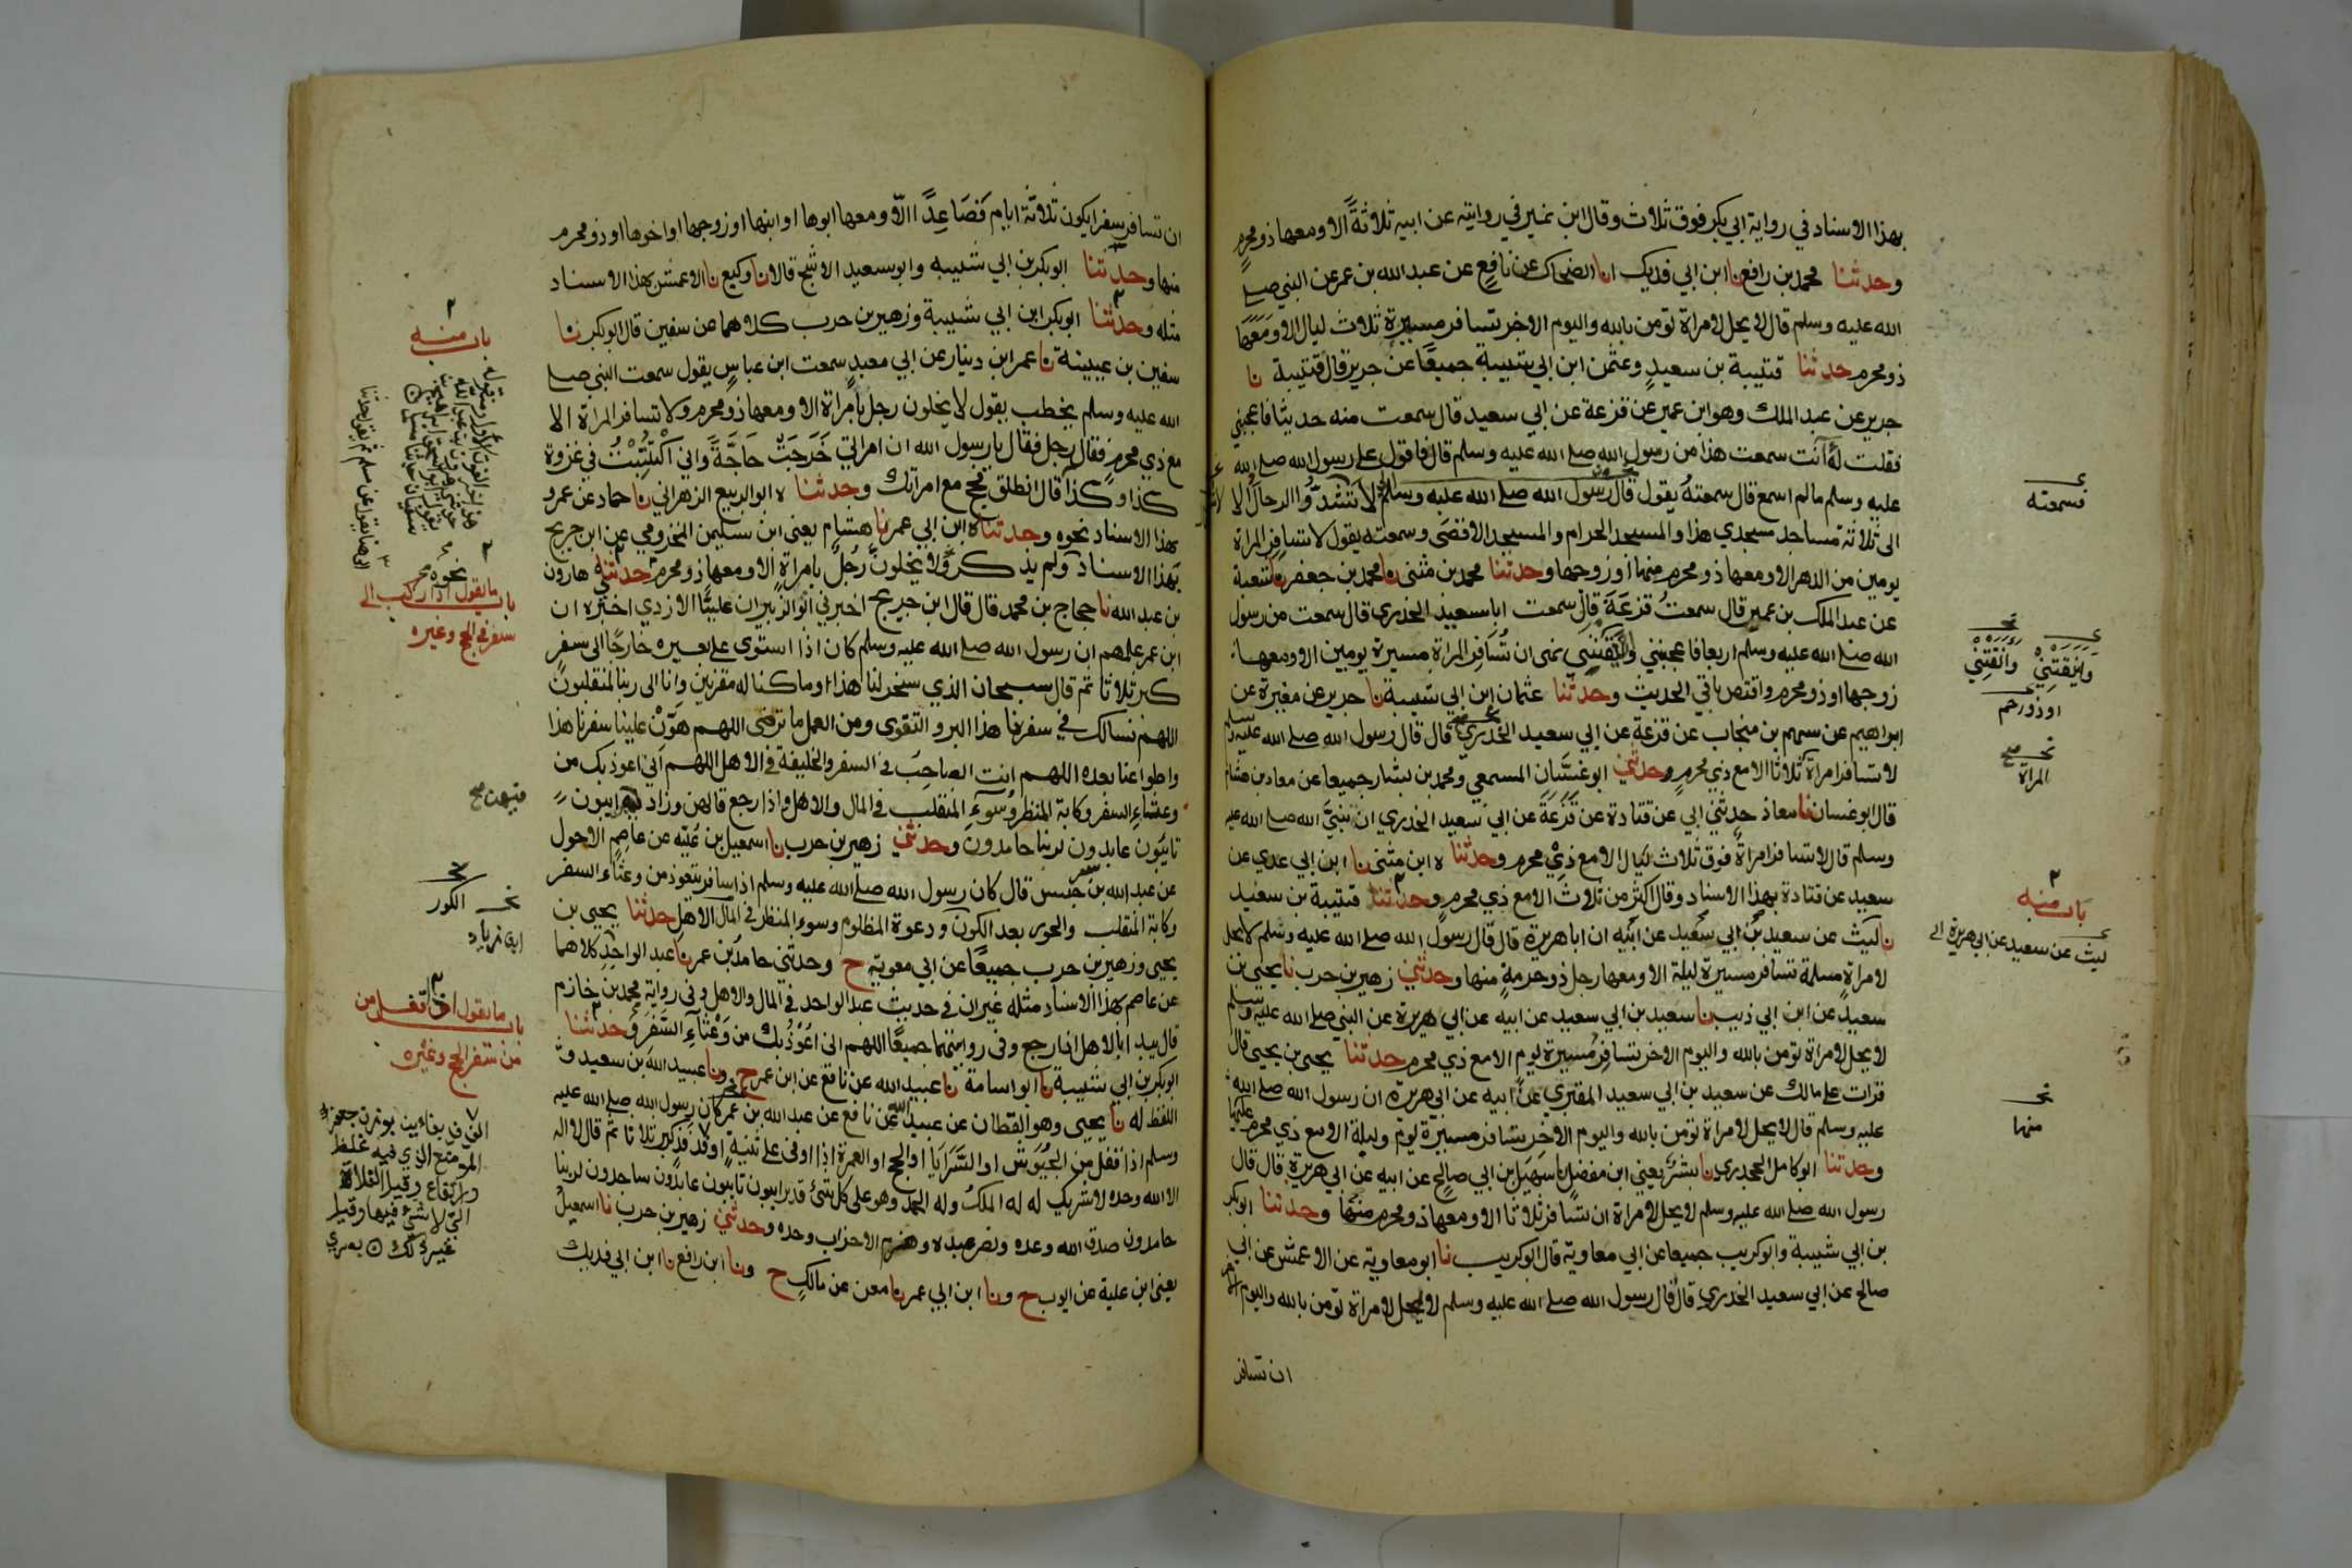 بهذا الاسناد في رواية ابي بكر فوق ثلاث وقال ابن نمير في روايته عن ابيه ثلاثةً الا ومعها ذو محرمٍ
وحدثنا محمد بن رافع نا ابن ابي فديك انا الضحاك عن نافعٍ عن عبد الله بن عمر عن النبي صلى
الله عليه وسلم قال لا يحل لامراة تومن بالله واليوم الاخر تسافر مسيرة ثلاث ليال الا ومعها
ذو محرم حدثنا قتيبة بن سعيدٍ وعثمن ابن ابي شيبة جميعًا عن جرير قال قتيبة نا
جرير عن عبد الملك وهو ابن عمير عن قزعة عن ابي سعيد قال سمعت منه حديثا فاعجبني
فقلت لهُ آنت سمعت هذا من رسول الله صلى الله عليه وسلم قال فاقول على رسول الله صلى الله
عليه وسلم مالم اسمع قال سمعتهُ يقول قال رسول الله صلى الله عليه وسلم لا تشدّوا الرحال الا
الى ثلاثة مساجد مسجدي هذا والمسجد الحرام والمسجد الاقصَى وسمعته يقول لا تسافر المراة
يومين من الدهر الا ومعها ذو محرم منها او زوجها وحدثنا محمد بن مثنى نا محمد بن جعفر نا شعبة
عن عبد الملك بن عمير قال سمعتُ قزعَةَ قال سمعت ابا سعيد الخدري قال سمعت من رسول
الله صلى الله عليه وسلم اربعا فاعجبنني وانقنني نهى ان تُسَافِر المراة مسيرة يومين الا ومعها
زوجها او ذو محرم واقتص باقي الحديث وحدثنا عثمان ابن ابي شيبة نا جرير عن مغيرة عن
ابراهيم عن سهم بن منجاب عن قزعة عن ابي سعيد الخدري قال قال رسول الله صلى الله عليه وسلم
لا تسافر امراة ثلاثا الا مع ذي محرمٍ وحدثني ابو غسّان المسمعي ومحمد بن بشار جميعا عن معاذ بن هشام
قال ابو غسان نا معاذ حدثني ابي عن قتادة عن قَزَعَةَ عن ابي سعيد الخدري ان نبيَّ الله صلى الله عليه
وسلم قال لا تسافر امراةٌ فوق ثلاث ليال الا مع ذِيْ محرم وحدثنا ه ابن مثنى نا ابن ابي عدي عن
سعيد عن قتادة بهذا الاسناد وقال اكثر من ثلاث الا مع ذي محرم وحدثنا قتيبة بن سعيد
نا ليث عن سعيد بن ابي سعيد عن ابيه ان ابا هريرة قال قال رسول الله صلى الله عليه وسلم لا يحل
لامراةٍ مسلمة تسافر مسيرة ليلة الا ومعها رجل ذو حرمةٍ منها وحدثني زهير بن حرب نا يحيى بن
سعيدٍ عن ابن ابي ذيب نا سعيد بن ابي سعيد عن ابيه عن ابي هريرة عن النبي صلى الله عليه وسلم
لا يحل لامراة تومن بالله واليوم الاخر تسافر مسيرة يومٍ الا مع ذي محرمٍ حدثنا يحيى بن يحيى قال
قرات على مالك عن سعيد بن ابي سعيد المقبري عن ابيه عن ابي هريرة ان رسول الله صلى الله
عليه وسلم قال لا يحل لامراة تومن بالله واليوم الاخر تسافر مسيرة يوم وليلة الا مع ذي محرم عليها
وحدثنا ابو كامل الجحدري نا بشر يعني ابن مفضل نا سهيل بن ابي صالحٍ عن ابيه عن ابي هريرة قال قال
رسول الله صلى الله عليه وسلم لا يحل لامراة ان تسافر ثلاثا الا ومعها ذو محرم منها وحدثنا ابو بكر
بن ابي شيبة وابو كريب جميعا عن ابي معاوية قال ابو كريب نا ابو معاوية عن الاعمش عن ابي
صالح عن ابي سعيد الخدري قال قال رسول الله صلى الله عليه وسلم لا يحل لامراة تومن بالله واليوم الاخر
ان تسافر
فسمعته
وانقنني
او ذو رحم
المراة
باب منه
ليث عن سعيد عن ابي هريرة
منها
ان تسافر سفرا يكون ثلاثة ايام فَصَاعِدًا الا ومعها ابوها او ابنها او زوجها او اخوها او ذو محرم
منها وحدثنا ابو بكر بن ابي شيبه وابو سعيد الاشج قالا نا وكيع نا الاعمش بهذا الاسناد
مثله وحدثنا ابو بكر ابن ابي شيبة وزهير بن حرب كلاهما عن سفين قال ابو بكر نا
سفين بن عيينة نا عمر ابن دينار عن ابي معبدٍ سمعت ابن عباسٍ يقول سمعت النبي صلى
الله عليه وسلم يخطب يقول لا يخلون رجل بامراة الا ومعها ذو محرم ولا تسافر المراة الا
مع ذي محرمٍ فقال رجل فقال يا رسول الله ان امراتي خَرَجَتْ حَاجَّةً واني اكْتُتِبْتُ في غزوة
كذا وكذا قال انطلق فحج مع امراتك وحدثنا ه ابو الربيع الزهراني نا حماد عن عمرو
بهذا الاسناد نحوه وحدثنا ه ابن ابي عمر نا هشام يعني ابن سليمن المخزومي عن ابن جريج
بهذا الاسناد ولم يذكر ولا يخلونّ رجلٌ بامراةٍ الا ومعها ذو محرم حدثني هارون
بن عبد الله نا حجاج بن محمد قال قال ابن جريج اخبرني ابو الزبير ان عليًّا الازدي اخبره ان
ابن عمر علمهم ان رسول الله صلى الله عليه وسلم كان اذا استوى على بعيره خارجًا الى سفرٍ
كبر ثلاثا ثم قال سبحان الذي سخر لنا هذا وما كنا له مقرنين وانا الى ربنا لمنقلبون
اللهم نسالك في سفرنا هذا البر والتقوى ومن العمل ما ترضى اللهم هوّن علينا سفرنا هذا
واطو عنا بعده اللهم انت الصاحبُ في السفر والخليفة في الاهل اللهم اني اعوذ بك من
وعثاء السفر وكابة المنظر وسوء المنقلب في المال والاهل واذا رجع قالهن وزاد فيهن ايبون
تايبون عابدون لربنا حامدون وحدثني زهير بن حرب نا اسمعيل بن عليّه عن عاصم الاحول
عن عبد الله بن سرجس قال كان رسول الله صلى الله عليه وسلم اذا سافر يتعوذ من وعثاء السفر
وكابة المنقلب والحور بعد الكون ودعوة المظلوم وسوء المنظر في المال الاهل حدثنا يحيى بن
يحيى وزهير بن حرب جميعًا عن ابي معوية ح وحدثني حامد بن عمر نا عبد الواحد كلاهما
عن عاصم بهذا الاسناد مثله غير ان في حديث عبد الواحد في المال والاهل وفي رواية محمد بن خازم
قال يبدا بالاهل اذا رجع وفي روايتهما جميعًا اللهم اني اعُوْذُبك من وَعْثَاءِ السَّفَرِ وحدثنا
ابو بكر بن ابي شيبة نا ابو اسامة نا عبيد الله عن نافع عن ابن عمر ح ونا عبيد الله بن سعيد و
اللفظ له نا يحيى وهو القطان عن عبيد الله عن نافع عن عبد الله بن عمر كان رسول الله صلى الله عليه
وسلم اذا قفل من الجيوش او السَّرَايا او الحج او العمرة اذا اوفى على ثنيةٍ او فدفد كبر ثلاثا ثم قال لا اله
الا الله وحده لا شريك له له الملكُ وله الحمد وهو على كل شئ قدير ايبون تايبون عابدون ساجدون لربنا
حامدون صدق الله وعده ونصر عبده وهزم الاحزاب وحده وحدثني زهير بن حرب نا اسمعيل
يعني ابن علية عن ايوب ح ونا ابن ابي عمر نا معن عن مالكٍ ح ونا ابن رافع نا ابن ابي فديك
باب منه
نحوه
باب ما يقول اذا ركب الى
سفر في الحج وغيره
الكور
باب ما يقول اذا قفل من
من سفر الحج وغيره
الموضع الذي فيه غلظ
وارتفاع وقيل الفلاة
التي لا شئ فيها وقيل
غير ذلك